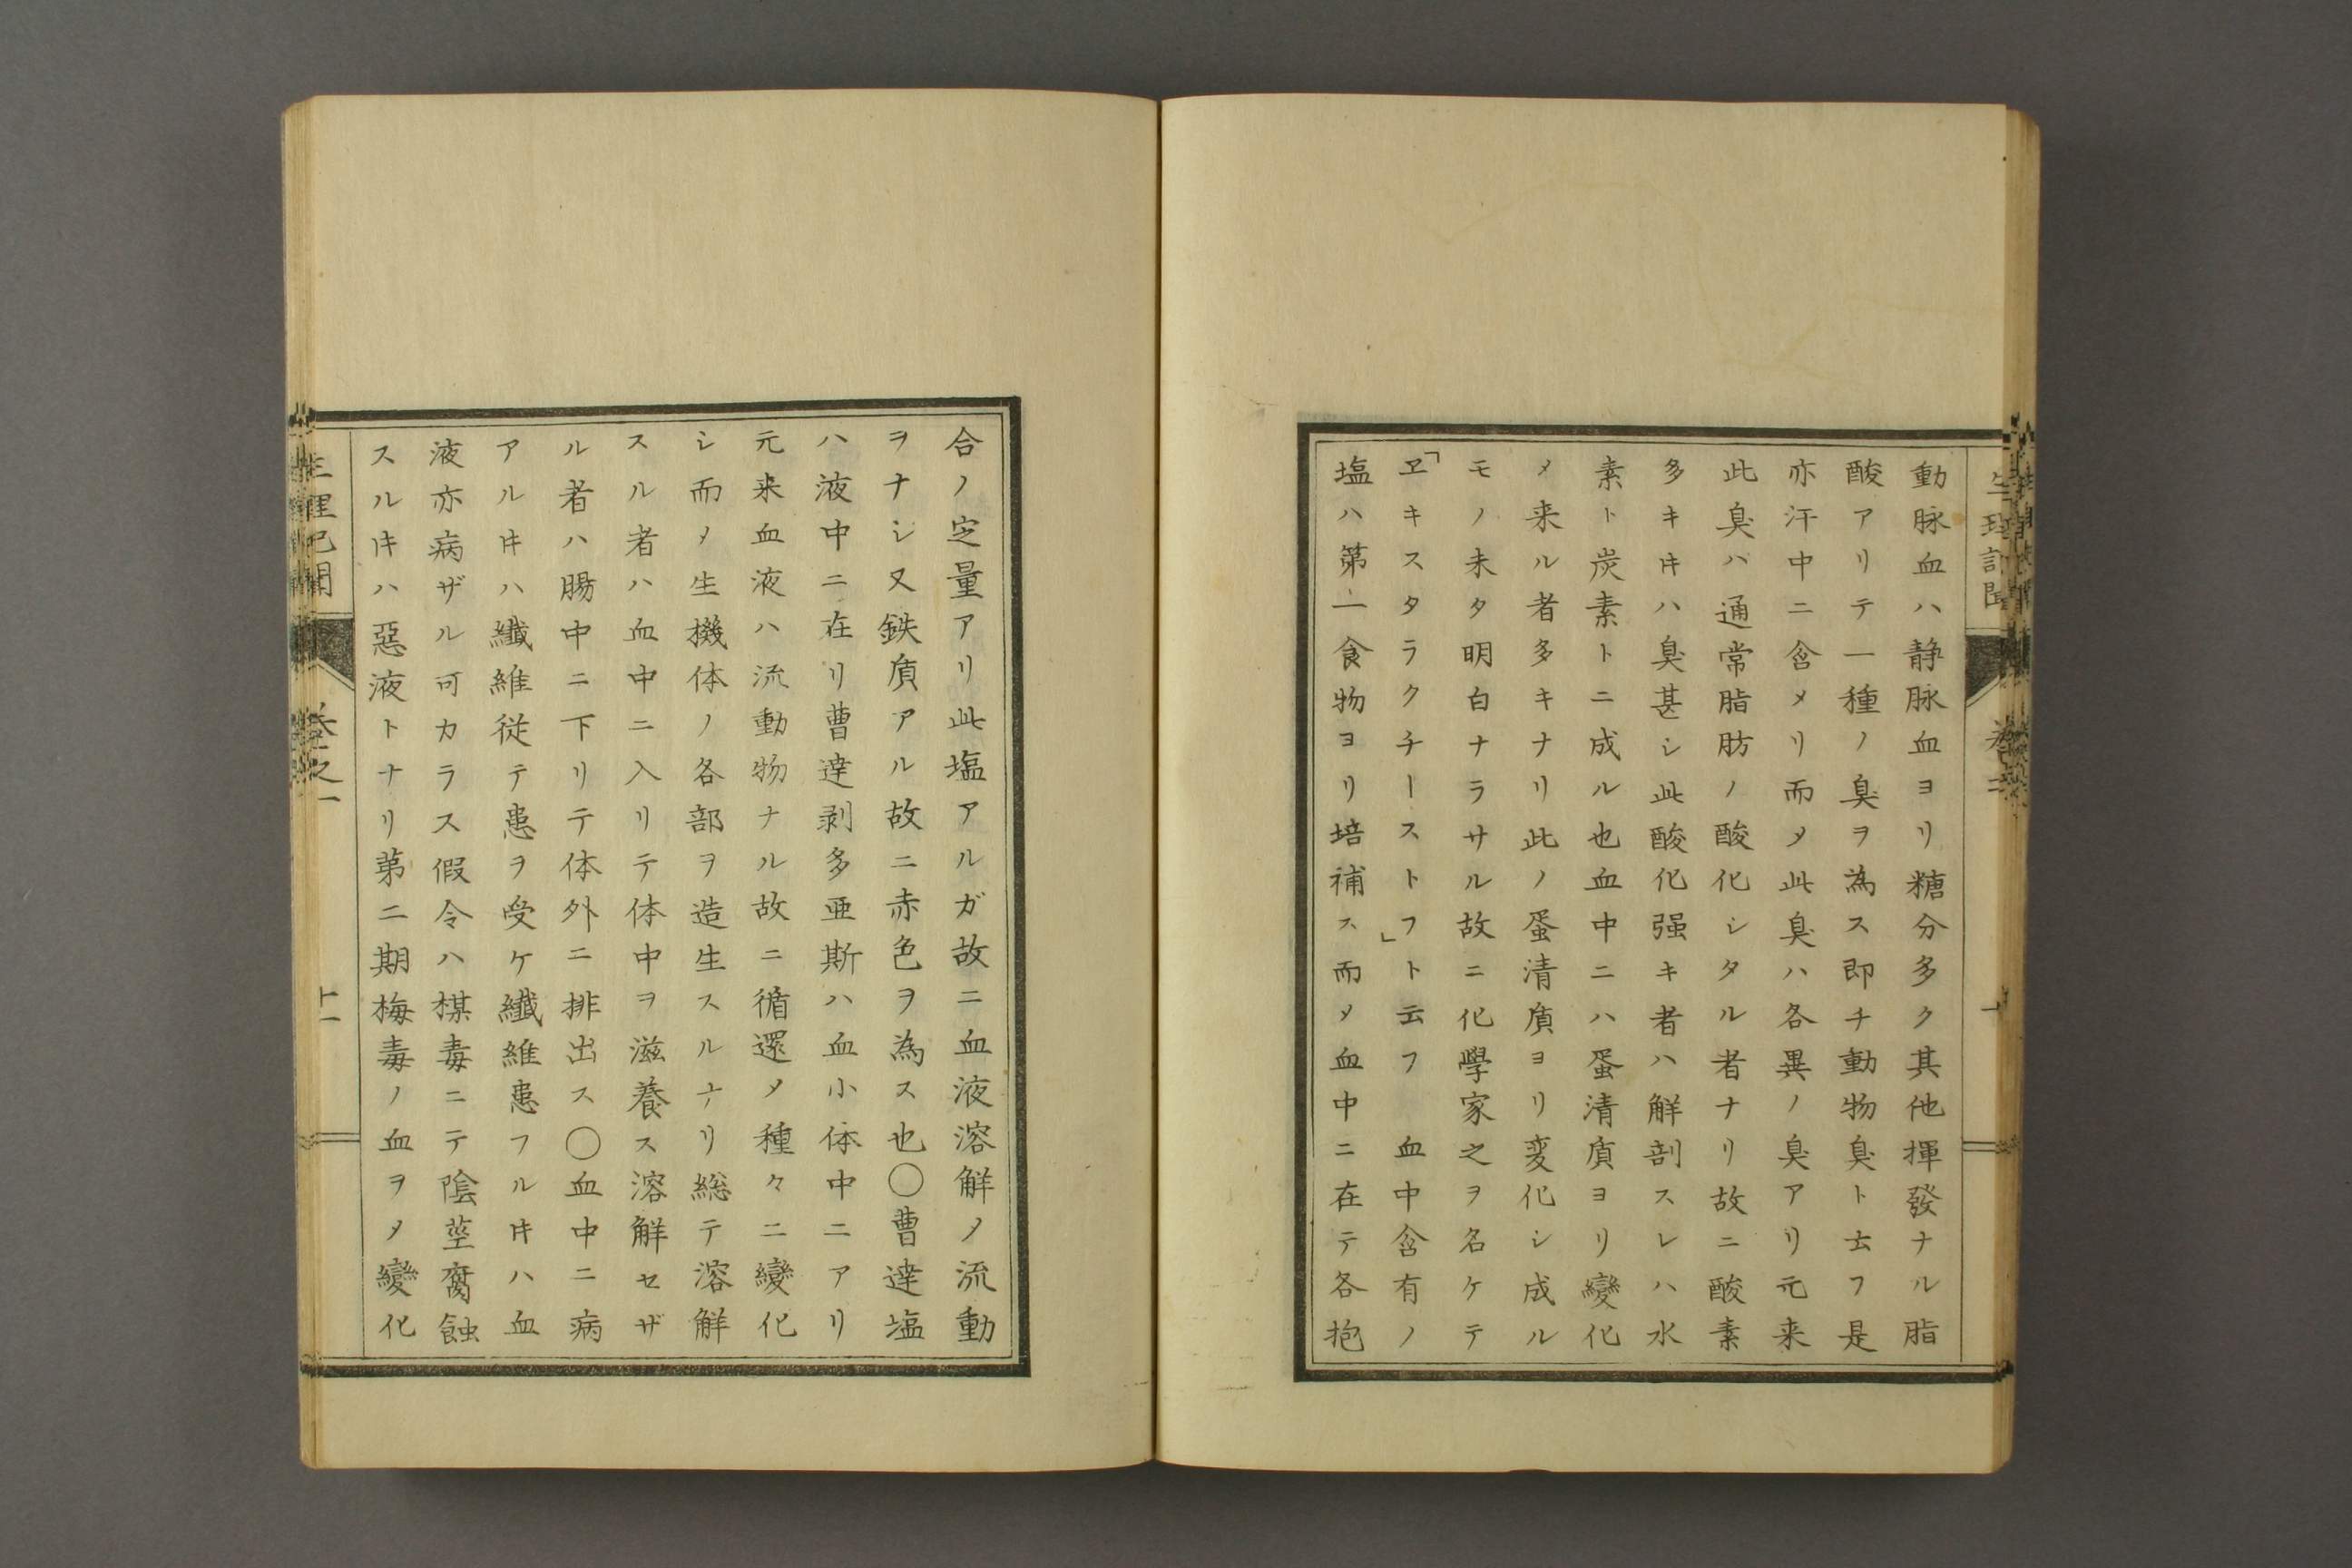 動脉血ハ静脉血ヨリ糖分多ク其他揮發ナル脂
酸アリテ一種ノ臭ヲ為ス即チ動物臭ト云フ是
亦汗中ニ含メリ而〆此臭ハ各異ノ臭アリ元来
此臭ハ通常脂肪ノ酸化シタル者ナリ故ニ酸素
多キ𪜈ハ臭甚シ此酸化强キ者ハ解剖スレハ水
素ト炭素トニ成ル也血中ニハ蛋清質ヨリ變化
〆来ル者多キナリ此ノ蛋清質ヨリ変化シ成ル
モノ未タ明白ナラサル故ニ化學家之ヲ名ケテ
「ヱキスタラクチーストフ」ト云フ 血中含有ノ
塩ハ第一食物ヨリ培補ス而〆血中ニ在テ各抱
合ノ定量アリ此塩アルガ故ニ血液溶解ノ流動
ヲナシ又鉄質アル故ニ赤色ヲ為ス也〇曹達塩
ハ液中ニ在リ曹達剥多亜斯ハ血小体中ニアリ
元来血液ハ流動物ナル故ニ循還〆種々ニ變化
シ而〆生機体ノ各部ヲ造生スルナリ総テ溶解
スル者ハ血中ニ入リテ体中ヲ滋養ス溶解セザ
ル者ハ腸中ニ下リテ体外ニ排出ス〇血中ニ病
アル𪜈ハ纎維従テ患ヲ受ケ纎維患フル𪜈ハ血
液亦病ザル可カラス假令ハ楳毒ニテ陰莖腐蝕
スル𪜈ハ惡液トナリ第二期梅毒ノ血ヲ〆變化
生理記聞
巻之一
十一